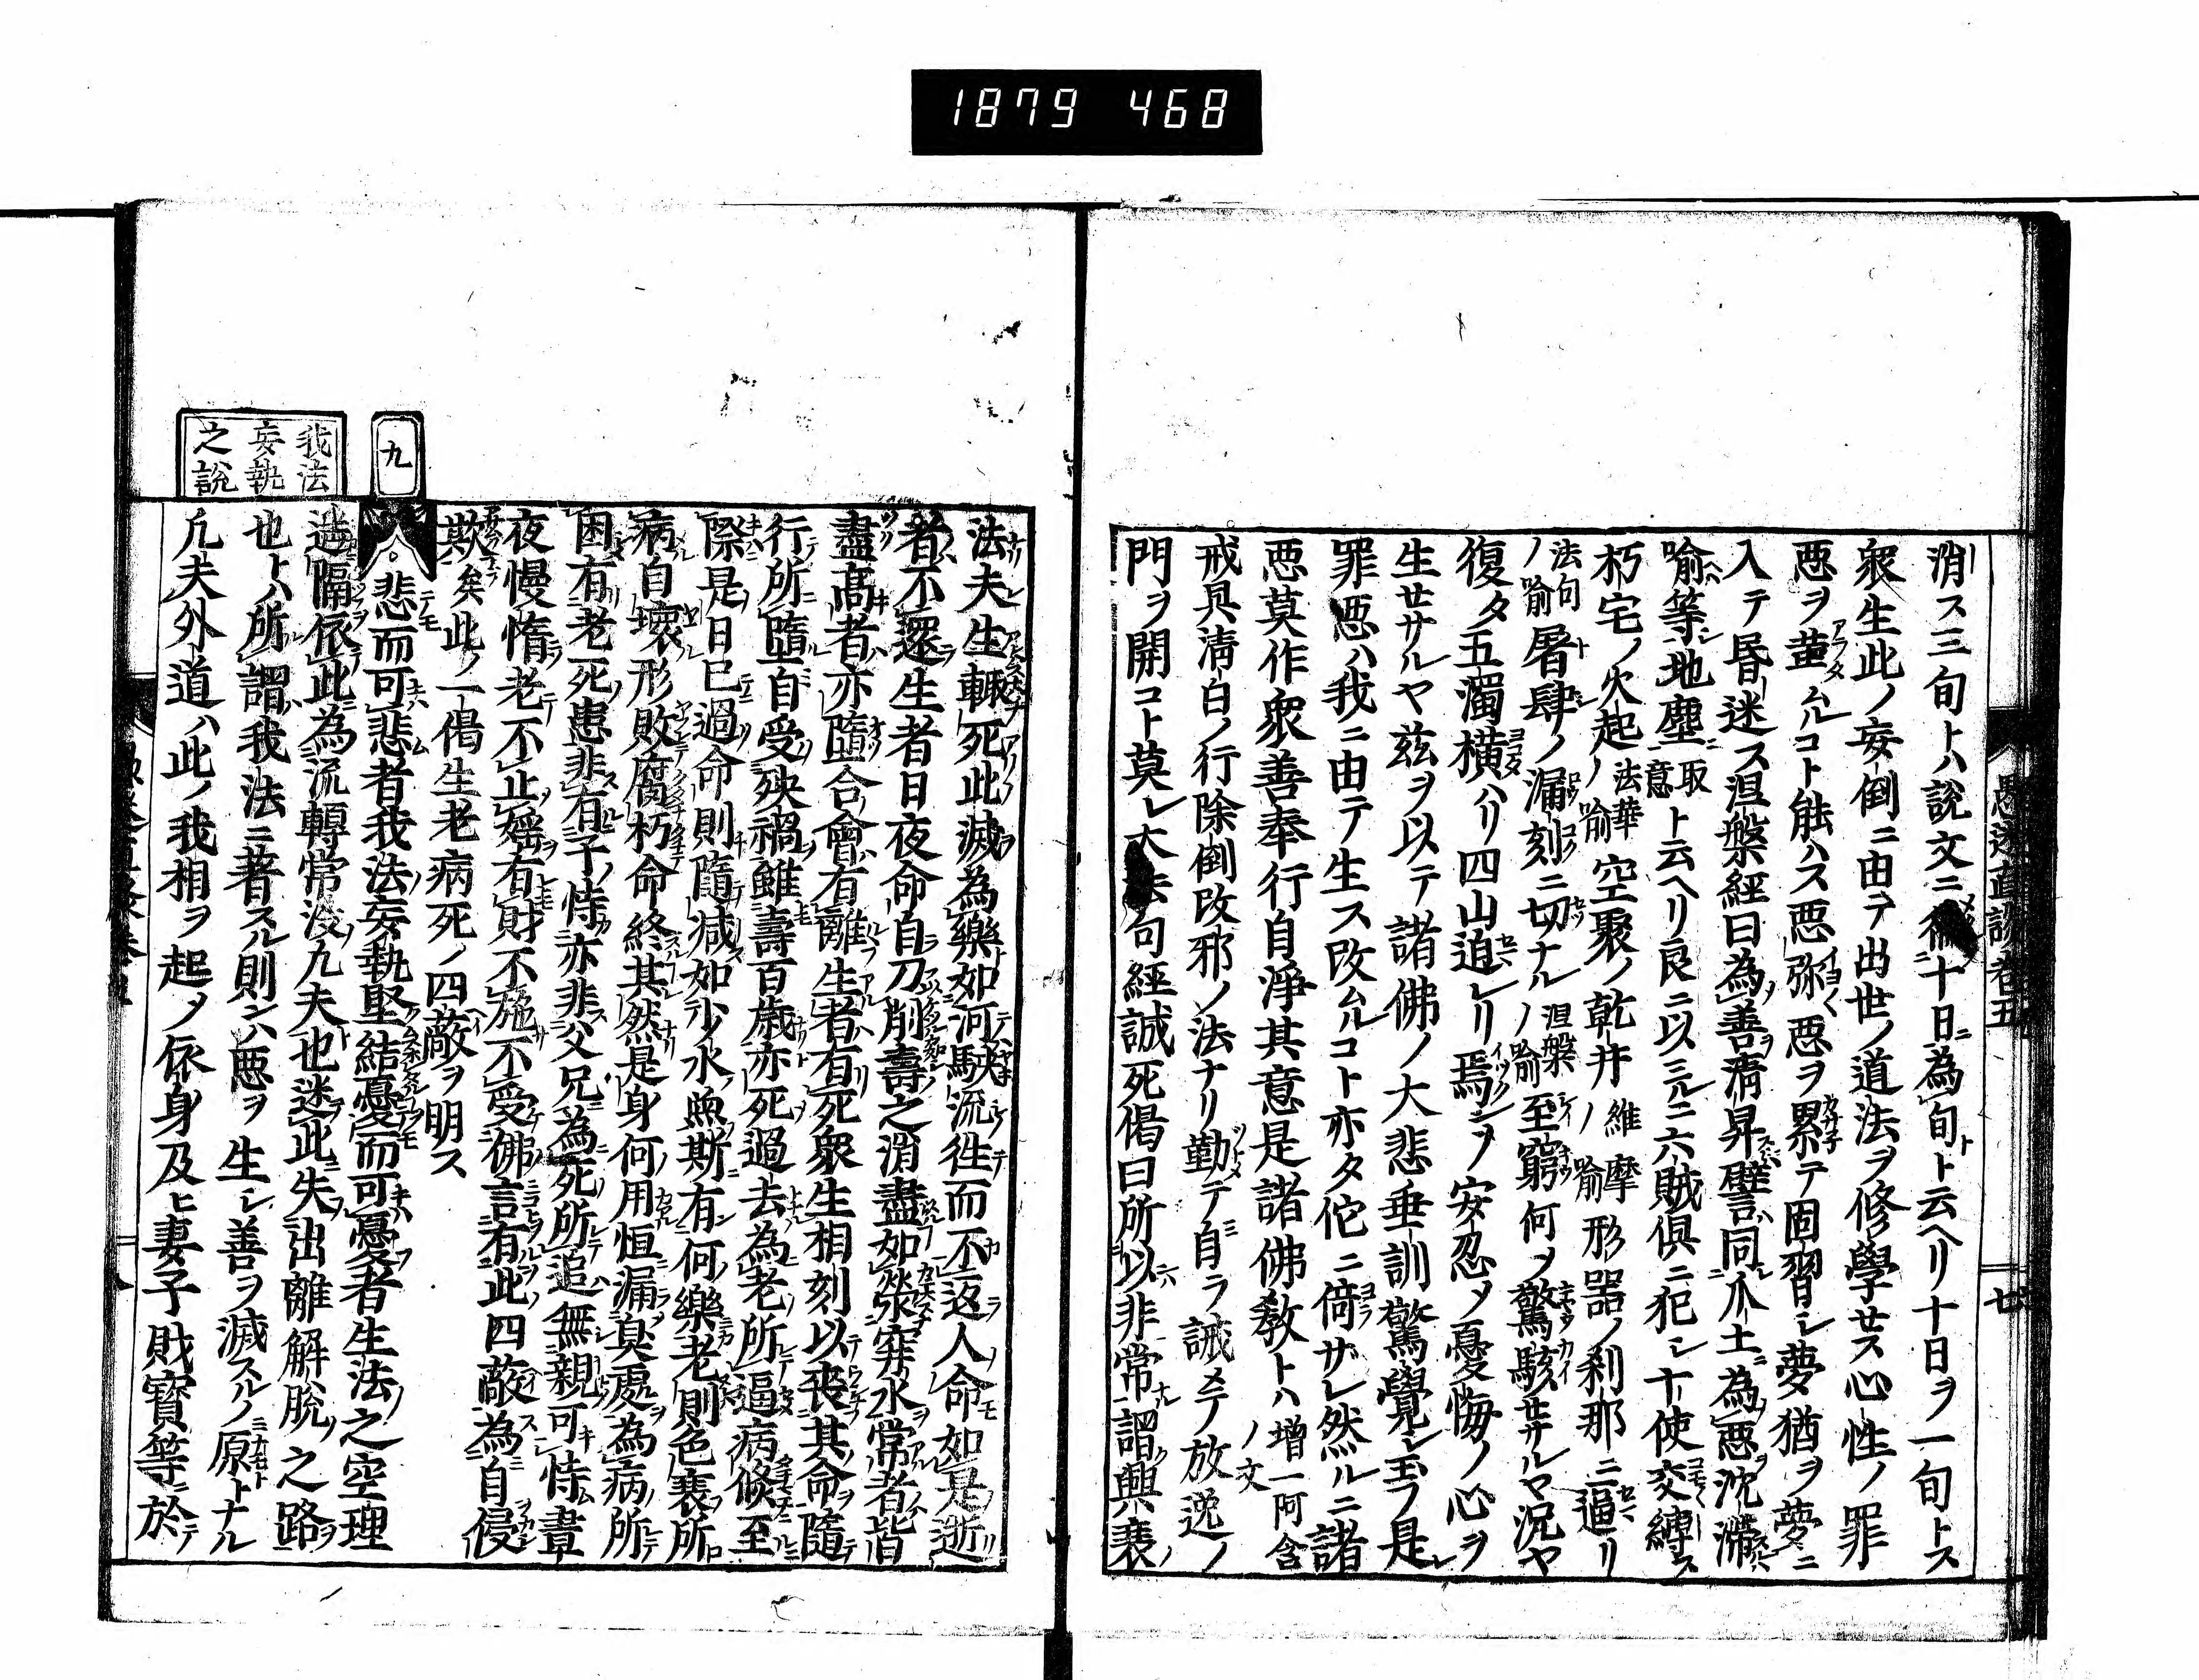 1879 468
愚迷直談卷五
七
消ス三旬トハ説文ニ徧十日為旬ト云ヘリ十日ヲ一旬トス
衆生此ノ妄倒ニ由テ出世ノ道法ヲ修學セス心性ノ罪
惡ヲムルコト能ハス惡弥惡ヲ累テ固習シ夢猶ヲ夢ニ
入テ昬迷ス涅槃經曰為善清昇譬同爪土為惡沈滯
喩等地塵取意ト云ヘリ良ニ以ミルニ六賊倶ニ犯シ十使交縛ス
朽宅ノ火起ノ法華喩空聚ノ乾井ノ維摩喩形器ノ刹那ニ逼リ
ノ法句喩屠肆ノ漏刻ニ切ナルノ涅槃喩至窮何ヲ驚駭セサルヤ況ヤ
復タ五濁横ハリ四山迫レリ焉シヲ安忍メ憂悔ノ心ヲ
生セサルヤ茲ヲ以テ諸佛ノ大悲垂訓驚覺シ玉フ是
罪惡ハ我ニ由テ生ス改ムルコト亦タ佗ニ倚ザレ然ルニ諸
惡莫作衆善奉行自淨其意是諸佛敎トハ増一阿含ノ文
戒具淸白ノ行除倒改邪ノ法ナリ勤テ自ラ誡メテ放逸ノ
門ヲ開コト莫レ大法句經誠死偈曰所以非常謂興衰
法夫生輙死此滅為樂如河駛流徃而不返人命如是逝
者不還生者日夜命自刀削壽之消盡如穽水常者皆
盡高者亦墮合會有離生者有死衆生相刻以喪其命隨
行所墮自受殃禍雖壽百歳亦死過去為老所逼病條至
際是日已過命則隨減如少水魚斯有何樂老則色衰所
病自壞形敗腐朽命終其然是身何用恒漏臭處為病所
困有老死患非有子恃亦非父兄為死所追無親可恃晝
夜慢惰老不止婬有財不施不受佛言有此四蔽為自侵
欺矣此ノ一偈生老病死ノ四蔽ヲ明ス
九
悲而可悲者我法妄執堅結憂而可憂者生法之空理
我法妄執之說
遮隔依此為流轉常沒凡夫也迷此失出離解脱之路
也トハ所謂我法ニ著スル則ンハ惡ヲ生シ善ヲ滅スルノ原トナル
凡夫外道ハ此ノ我相ヲ起ノ依身及ヒ妻子財寶等於